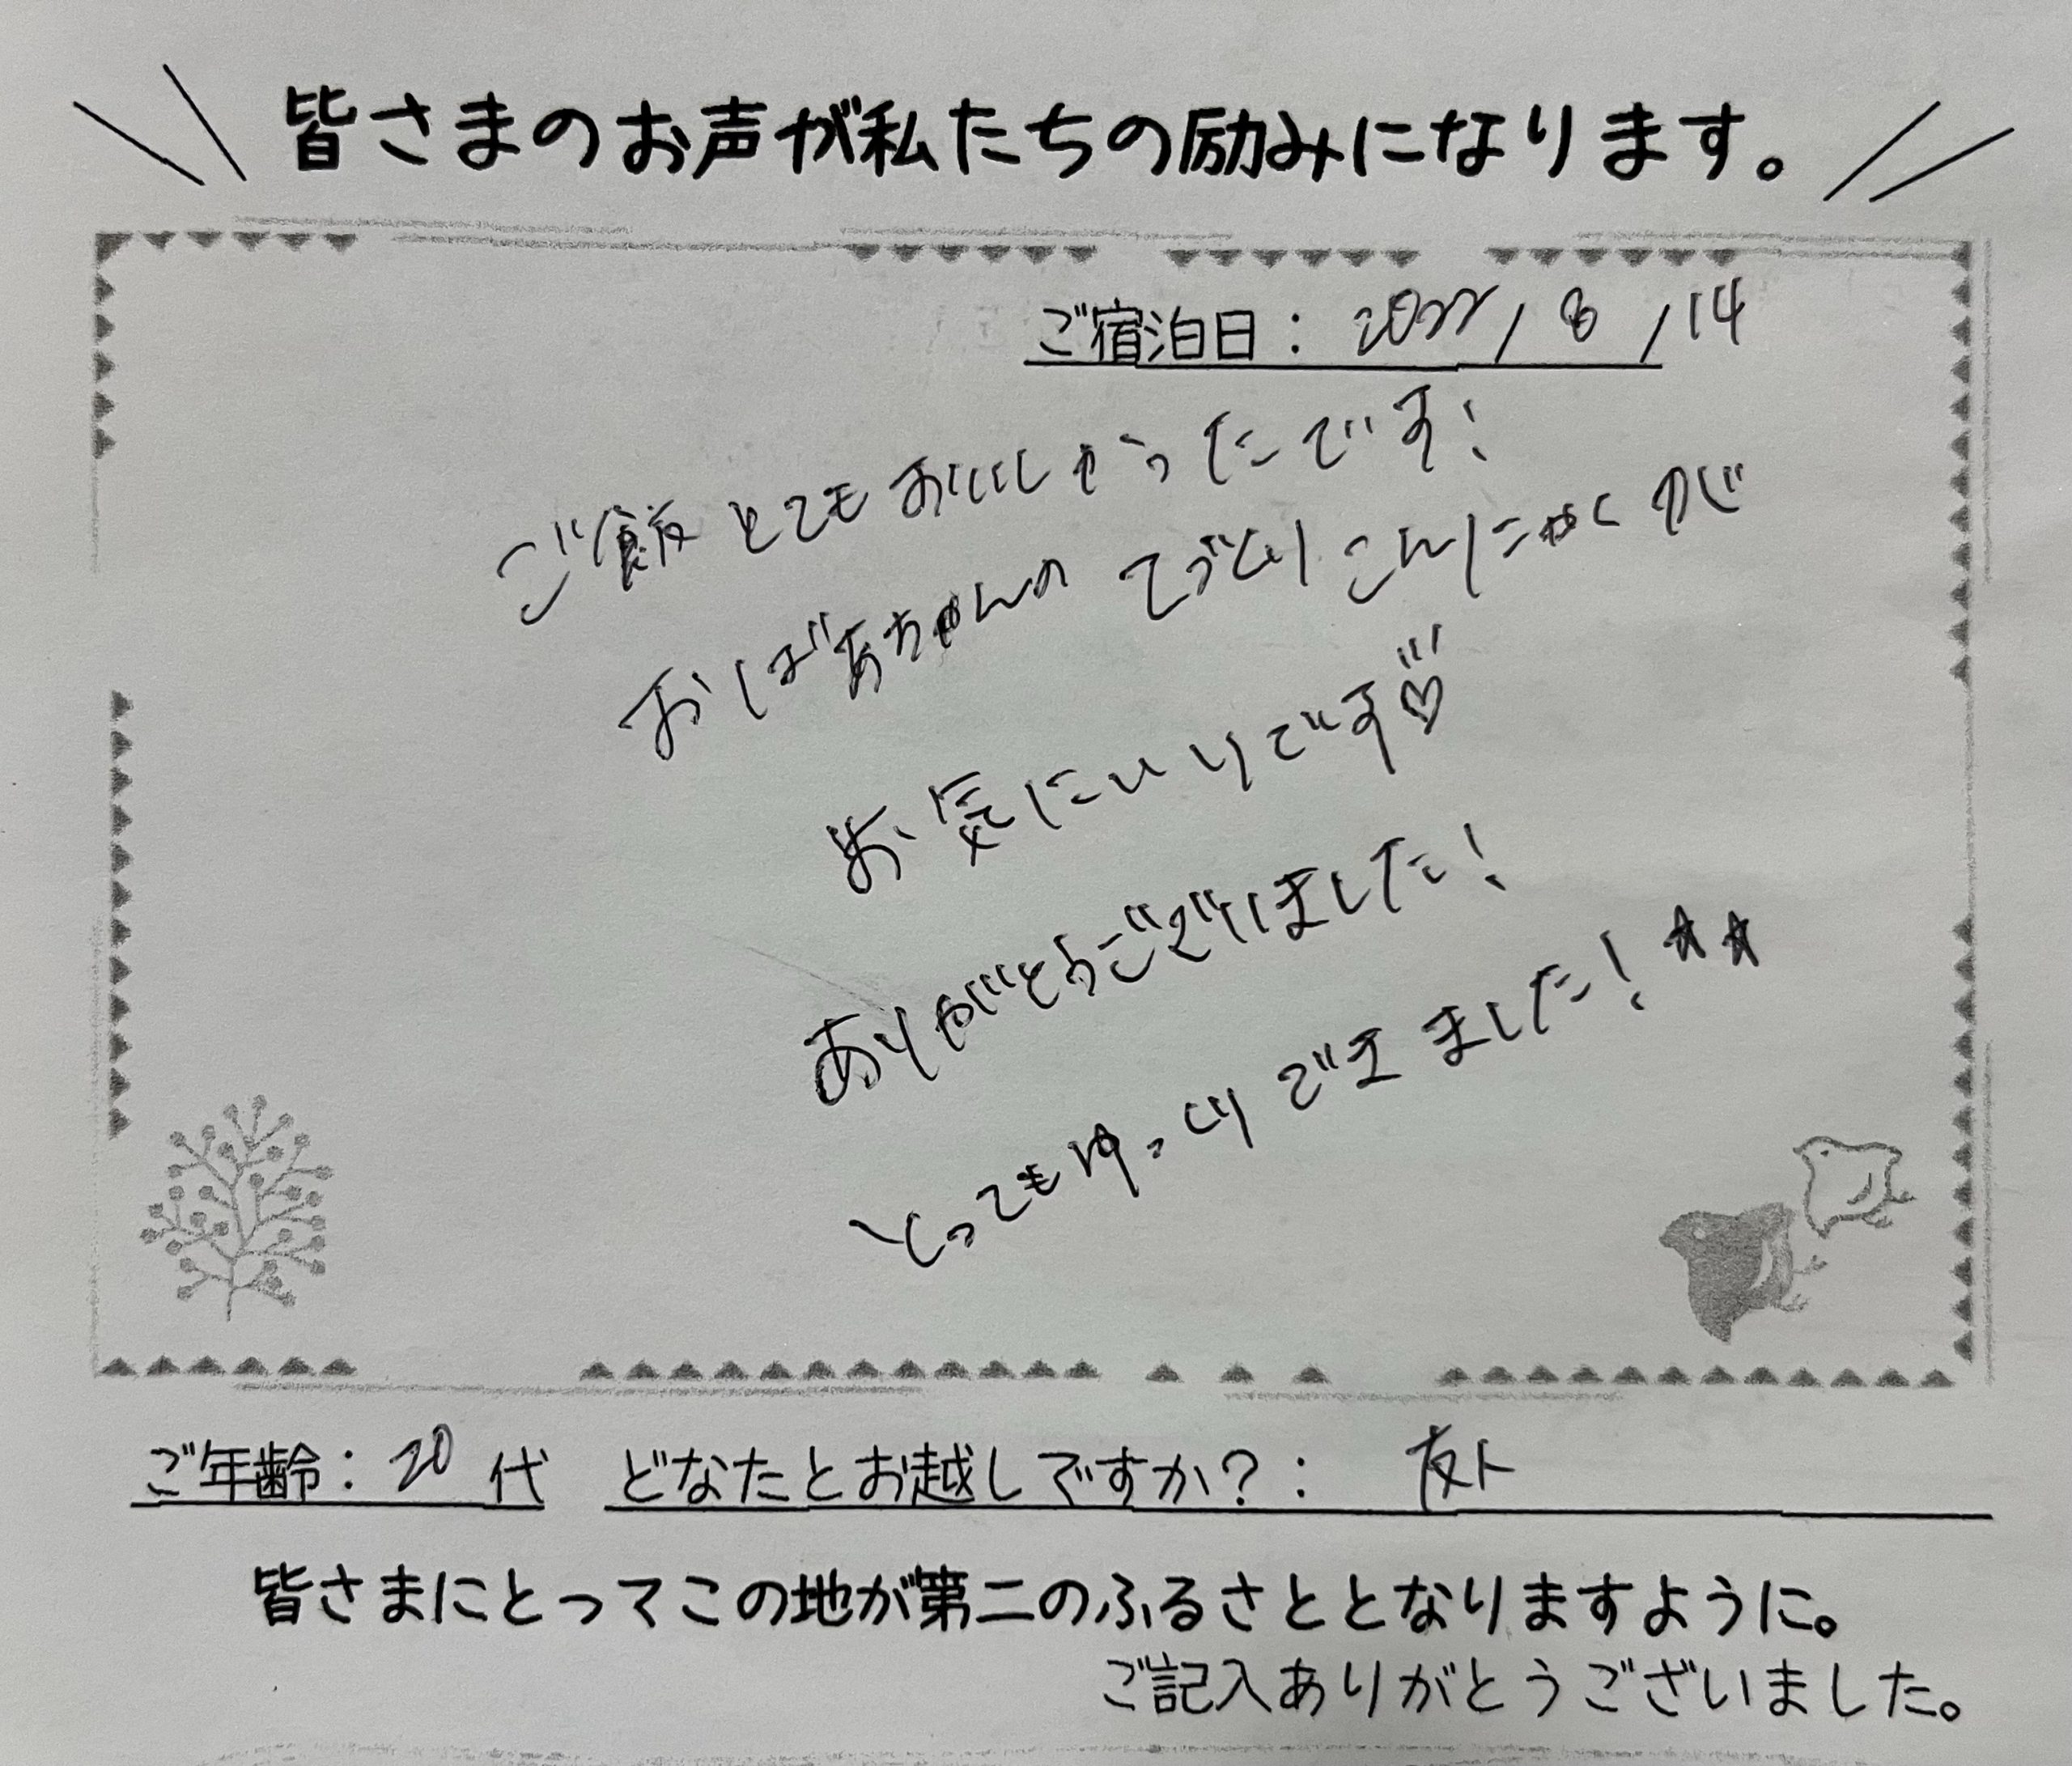 皆さまのお声が私たちの励みになります。
ご宿泊日: 2022/8/14
ご飯とてもおいしかったです!
おばあちゃんのてづくりこんにゃくが
お気にいりです♡
ありがとうございました!
とってもゆっくりできました!☆☆
ご年齢: 20代 どなたとお越しですか?: 友人
皆さまにとってこの地が第二のふるさととなりますように。
ご記入ありがとうございました。